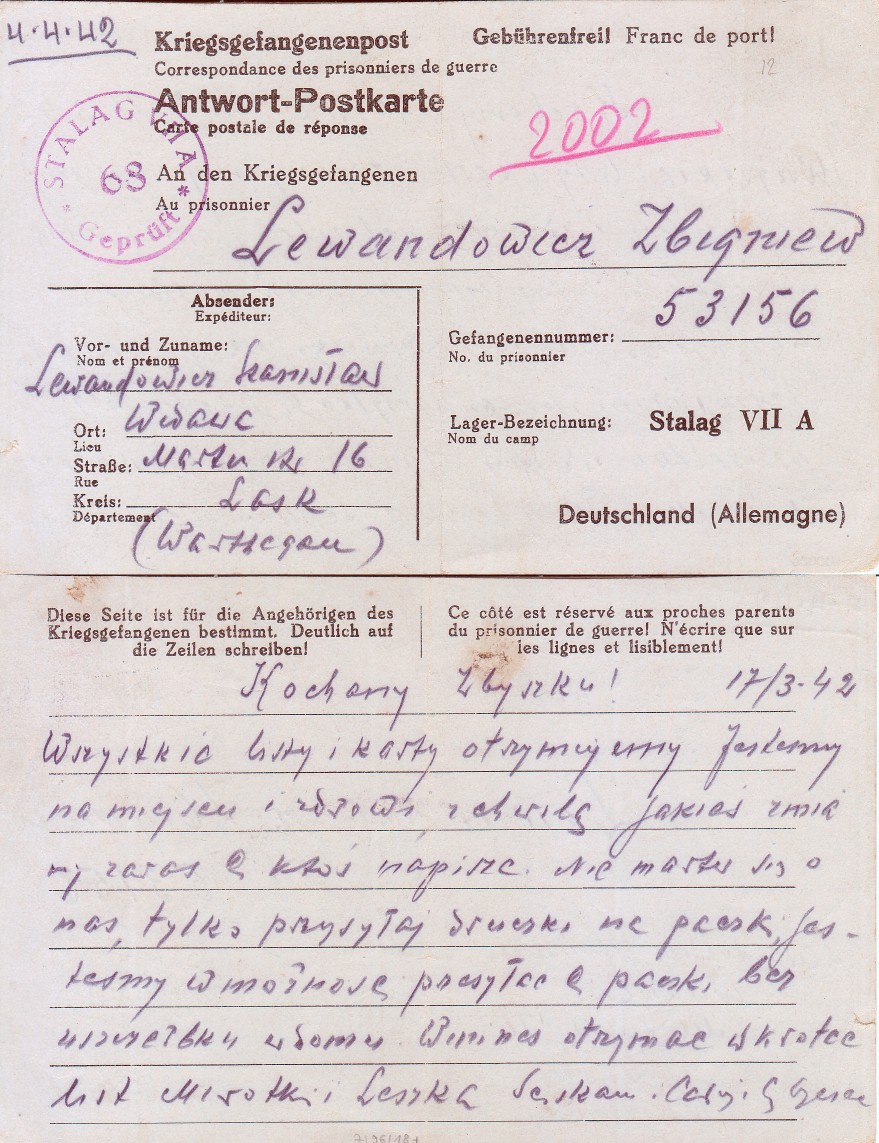 4.4.42
Kriegsgefangenenpost
Correspondance des prisonniers de guerre
Gebührenfrei! Franc de port!
12
Antwort-Postkarte
Carte postale de réponse
2002
STALAG VII A
68
* Geprüft *
An den Kriegsgefangenen
Au prisonnier
Lewandowicz Zbigniew
Absender:
Expéditeur:
Vor- und Zuname:
Nom et prénom
Lewandowicz Stanisław
Ort: Widawa
Lieu
Straße: 16
Rue
Kreis: Lask
Département
(Warthegau)
53156
Gefangenennummer:
No. du prisonnier
Lager-Bezeichnung: Stalag VII A
Nom du camp
Deutschland (Allemagne)
Diese Seite ist für die Angehörigen des
Kriegsgefangenen bestimmt. Deutlich auf
die Zeilen schreiben!
Ce côté est réservé aux proches parents
du prisonnier de guerre! N'écrire que sur
les lignes et lisiblement!
Kochany Zbyszku! 17/3-42
Wszystkie listy i karty otrzymujemy Jesteśmy
na miejscu i zdrowi, z chwilą jakiejś zmia
ny zaraz Ci ktoś napisze. Nie martw się o
nas, tylko przysyłaj druczki na paczki, jes-
teśmy w możności przesyłać Ci paczki bez
uszczerbku w domu. Winineś otrzymać wkrótce
list Mirotki i Leszka